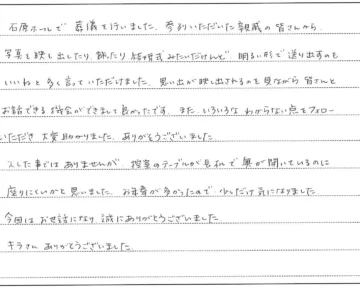 石原ホールで葬儀を行いました。参列いただいた親戚の皆さんから
写真を映し出したり、飾ったり結婚式みたいだけれど 明るい形で送り出すのも
いいねと多く言っていただけました。思い出が映し出されるのを見ながら皆さんと
お話できる機会ができまして良かったです。また、いろいろな わからない点をフォロー
いただき 大変助かりました。ありがとうございました。
大した事ではありませんが、控室のテーブルが長机で奥が開いているのに
座りにくいかと思いました。お年寄が多かったので少しだけ気になりました。
今回は お世話になり 誠にありがとうございました。
キラさん ありがとうございました。